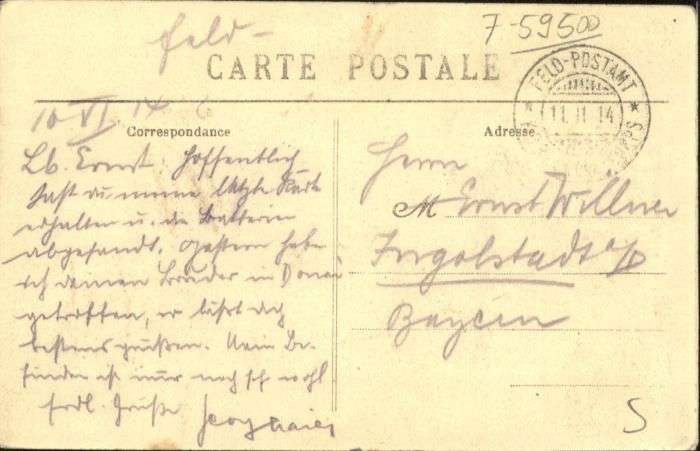 Feld-
7-59500
CARTE POSTALE
FELD-POSTAMT
11. 11. 14
10 VI 14
Correspondance
Adresse
Lb. Ernst. Hoffentlich
hast du meine letzte Karte
erhalten u. die Batterien
abgesandt. Gestern habe
ich deinen Bruder in
getroffen, er läßt dich
bestens grüßen. Mein Be-
finden ist nur noch sehr wohl
frdl. Grüße
Herrn
M Ernst Willner
Ingolstadt a/D
Bayern
S